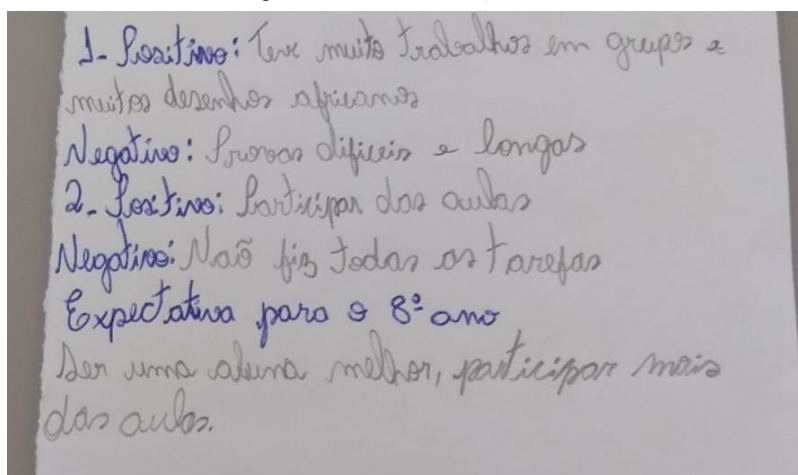 1- Positivo: Teve muito trabalhos em grupos e
muitos desenhos africanos
Negativo: Provas dificeis e longas
2- Positivo: Participar das aulas
Negativo: Naõ fiz todas as tarefas
Expectativa para o 8º ano
Ser uma aluna melhor, participar mais
das aulas.